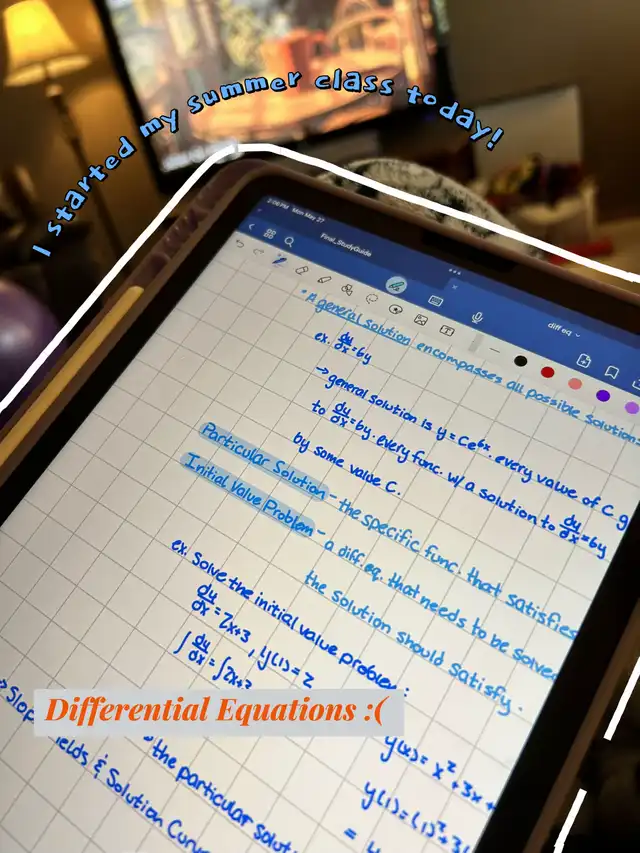 I started my summer class today!
2:06 PM Mon May 27
Final_StudyGuide
diff eq
• A general solution encompasses all possible solutions
ex. dy/dx = 6y
→ general solution is y = Ce^6x. every value of C g
to dy/dx = 6y. every func. w/ a solution to dy/dx = 6y
by some value C.
Particular Solution - the specific func. that satisfies
Initial Value Problem - a diff. eq. that needs to be solve
the solution should satisfy.
ex. Solve the initial value problem:
dy/dx = 2x+3, y(1) = 2
∫ dy/dx = ∫ 2x+3
Differential Equations :(
y(x) = x² + 3x +
y(1) = (1)² + 3(
= 4
the particular solut
Slop
ields, & Solution Curv